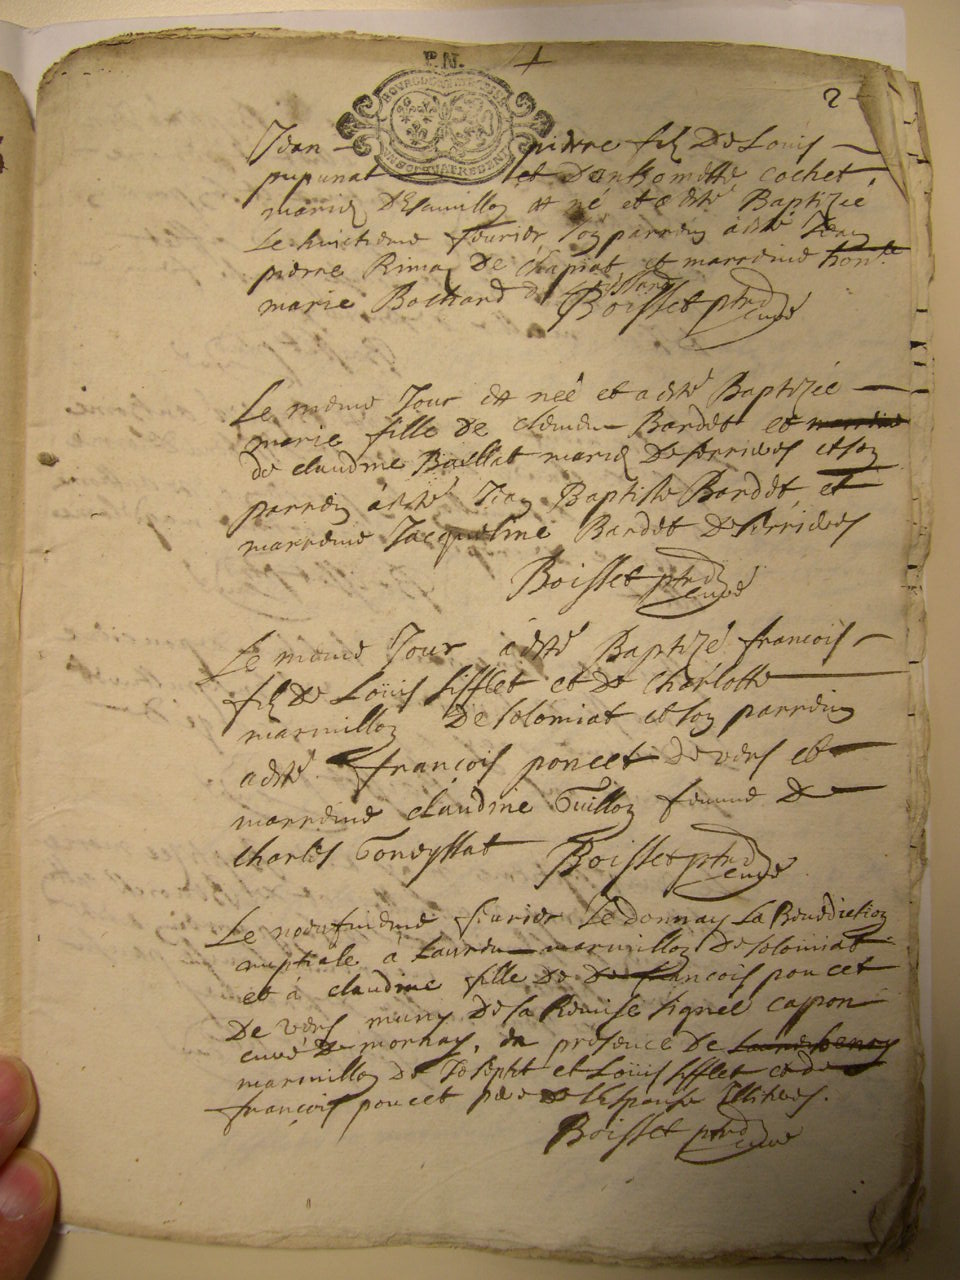 P.N.
2
Jean pierre filz De Louis
pupunat et Danthomette cochet
mariez est né et a esté Baptizée
Le huictieme feurier, son parrein a esté Jean
pierre De chapiat et marreine
marie Bochard Boisset ptre curé
Le meme Jour est née et a esté Baptizée
marie fille De clemen Bardet et
de claudine Baillat mariez De serrieres et son
parrein a esté Jean Baptiste Bardet et
marreine Jacqueline Bardet De serrieres
Boisset ptre curé
Le meme Jour a esté Baptizé francois
filz De Loüis sifflet et De charlotte
marmillon De solomiat et son parrein
a esté francois poncet de vers et
marreine claudine Guillon femme De
charles Goneyssat Boisset ptre curé
Le neufvieme feurier Je donnay La Benediction
nuptiale a Lauren marmillon De solomiat
et a claudine fille De francois poncet
De vers muny De sa Remise signée capon
curé De mornay, En presence De
marmillon De Josepht et Loüis sifflet et de
francois poncet pere De L'Espouse Illiteres.
Boisset ptre curé